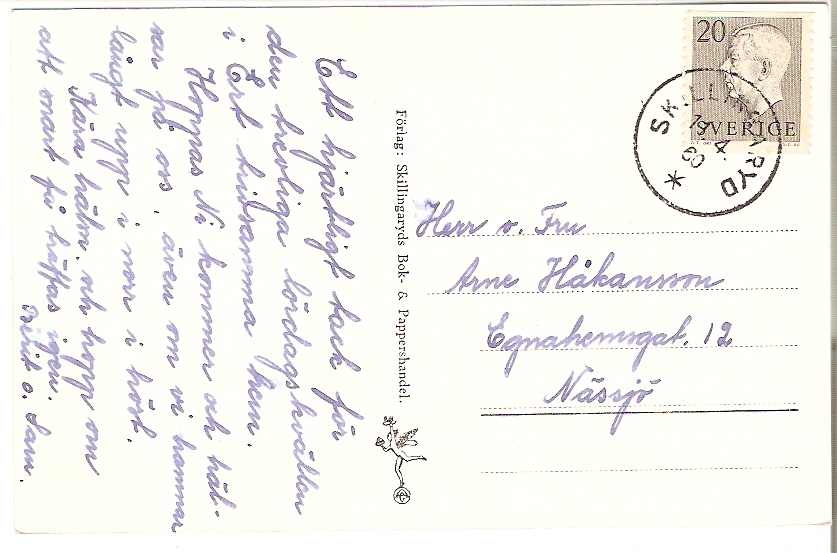 Ett hjärtligt tack för
den trevliga lördagskvällen
i Ert trivsamma hem.
Hoppas Ni kommer och häl-
sar på oss, även om vi hamnar
långt upp i norr i höst.
Kära häln. och hopp om
att snart få träffas igen.
Berit o. Sam.
Förlag: Skillingaryds Bok- & Pappershandel.
20
SVERIGE
SKILLINGARYD
Herr o. Fru
Arne Håkansson
Egnahemsgat. 12
Nässjö